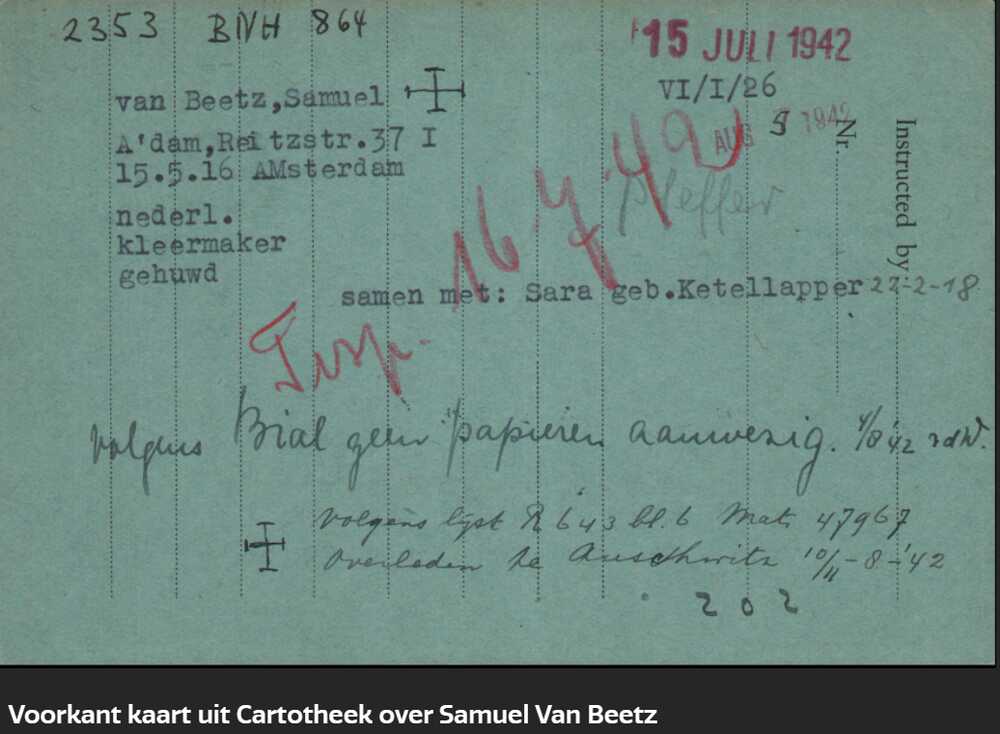 2353 BNH 864
15 JULI 1942
VI/I/26
van Beetz,Samuel
AUG 9 1942
A'dam,Reitzstr.37 I
15.5.16 AMsterdam
nederl.
kleermaker
gehuwd
Nr.
Instructed by:
Pfeffer
16 7. 42
samen met: Sara geb.Ketellapper 22-2-18
Trsp.
volgens Bial geen papieren aanwezig. 4/8 '42 vdW.
volgens lijst R 643 bl. 6 Mat. 47967
Overleden te Auschwitz 10/11-8-'42
202
Voorkant kaart uit Cartotheek over Samuel Van Beetz